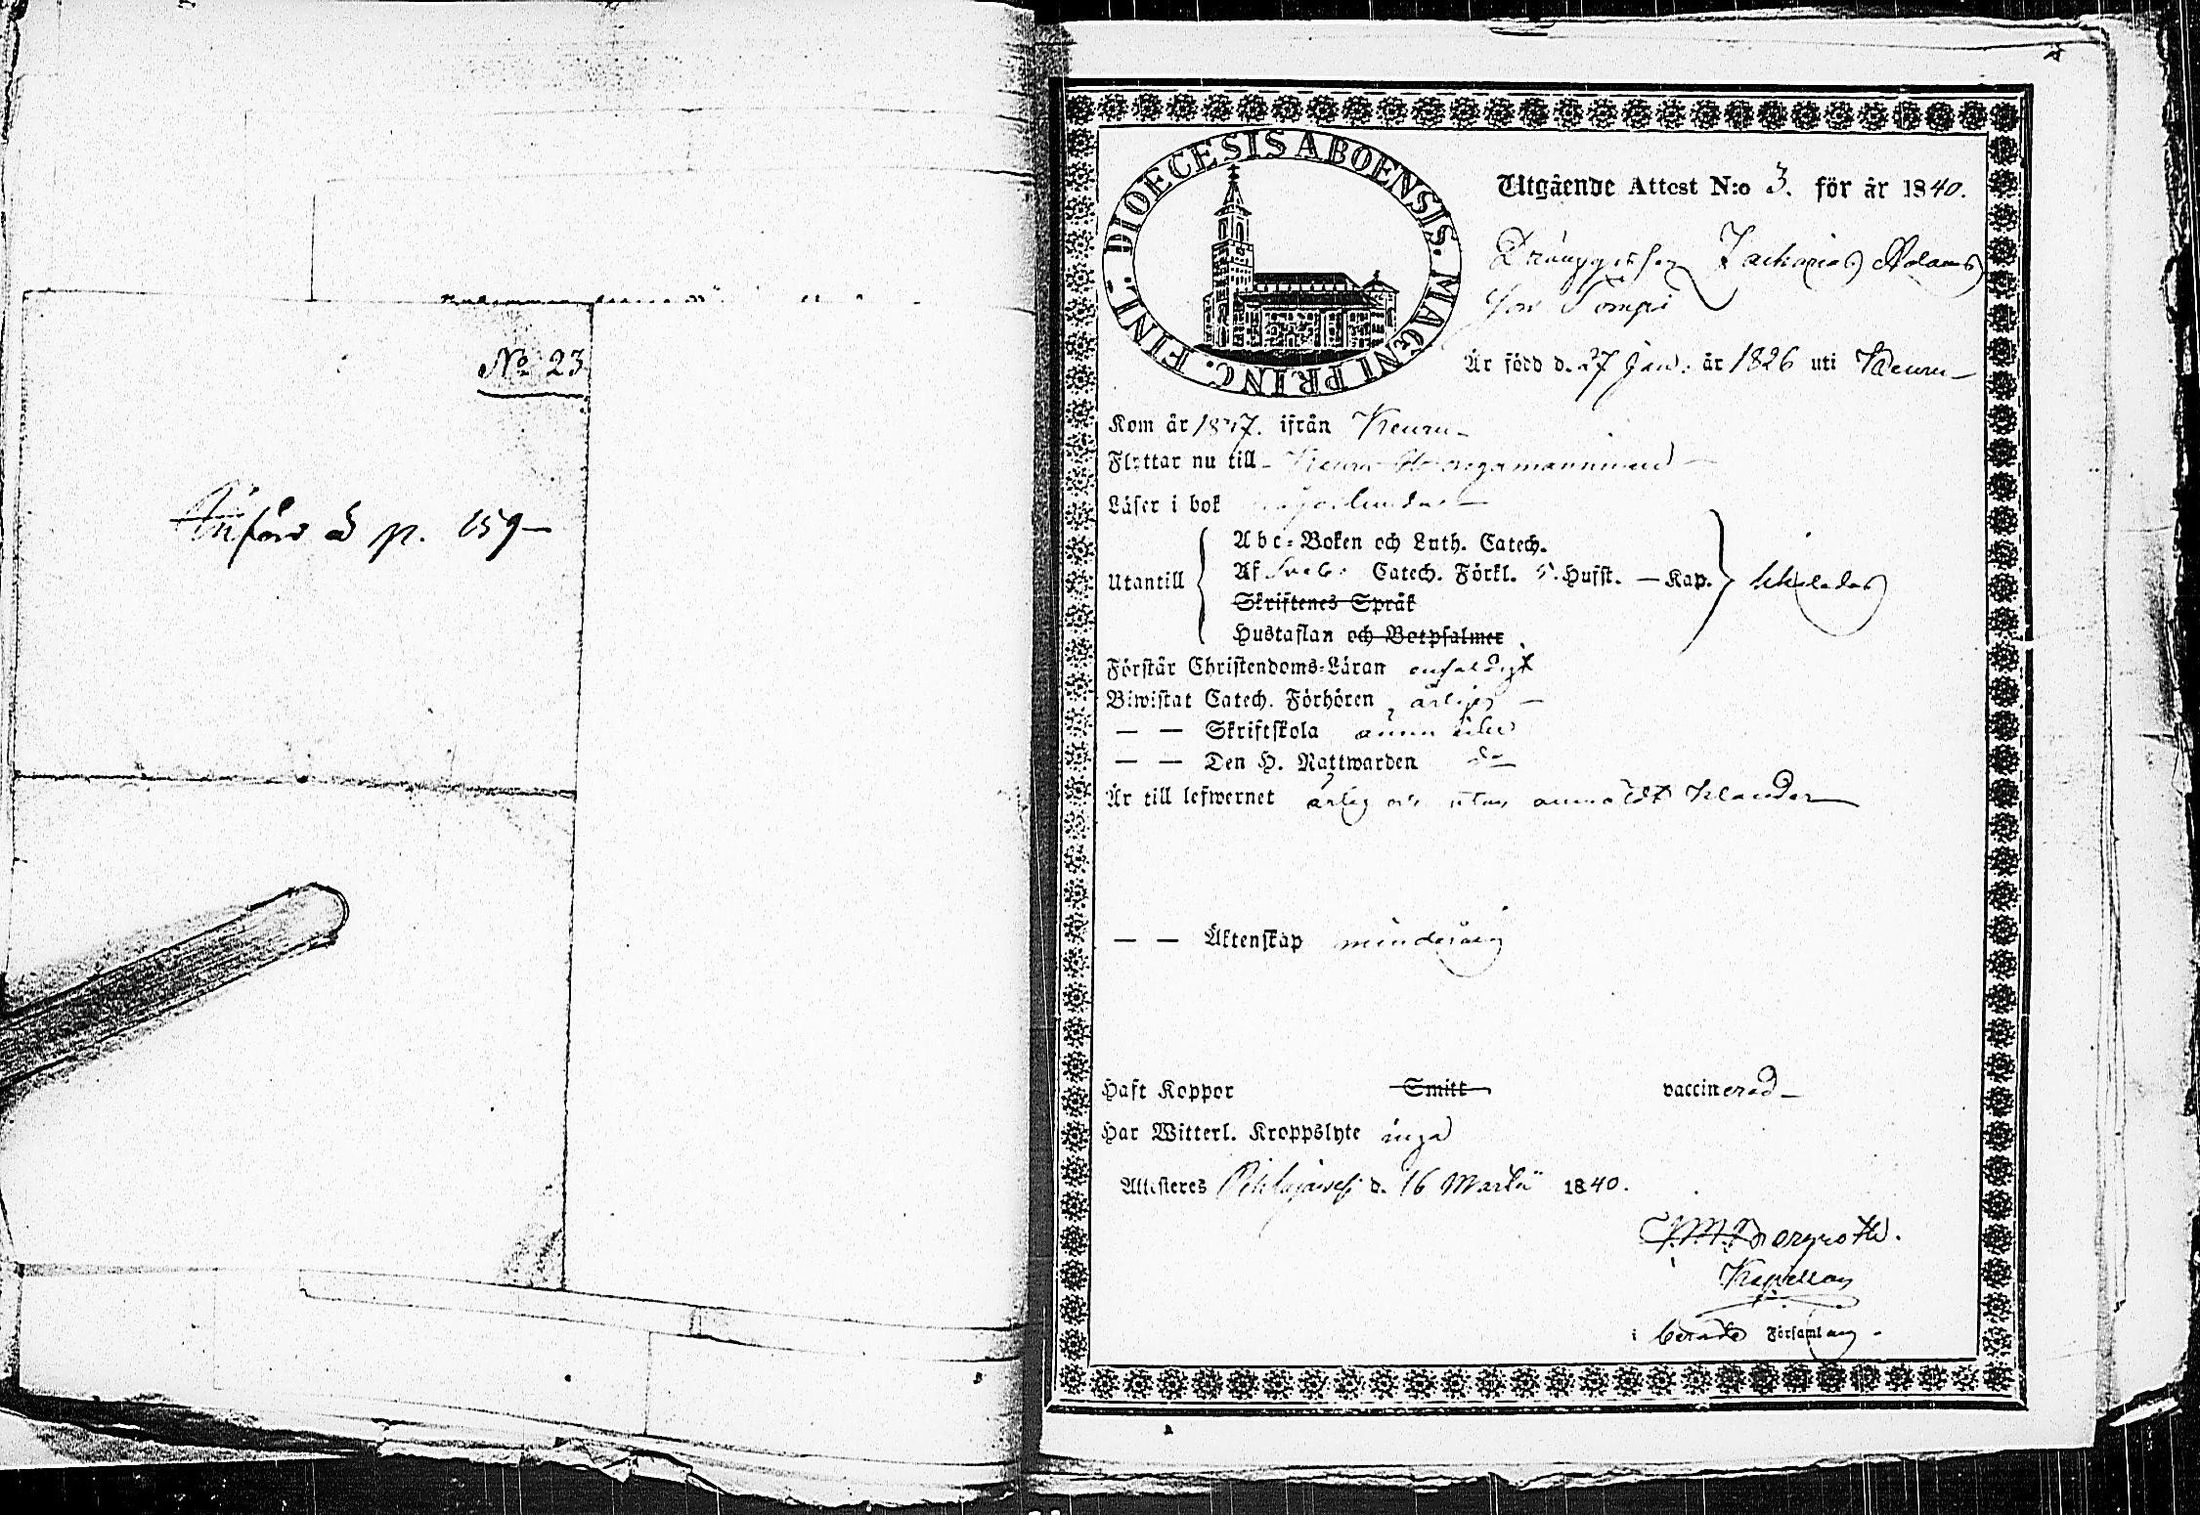 No 23
Införd å p. 159
DIOECESIS ABOENSIS. MAGNI PRINC. FINL.
Utgående Attest N:o 3. för år 1840.
Zacharias Adams
son
Är född d. 27 Jan. år 1826 uti Keuru
Kom år ifrån Keuru
Flyttar nu till
Läser i bok
Utantill
Abc-Boken och Luth. Catech.
Af Catech. Förkl. 5. Hufst. — Kap.
Skriftenes Språk
Hustaflan och Botpsalmer
Förstår Christendoms-Läran enfaldigt
Biwistat Catech. Förhören årligen
— — Skriftskola
— — Den H. Nattwarden do
Är till lefwernet ärlig och utan anmäldt klander
— — Äktenskap minderårig
Haft Koppor Smitt vaccinerad
Har Witterl. Kroppslyte inga
Attesteres Pihlajavesi d. 16 Martii 1840.
Bergroth.
Kapellan
i berörde Församling